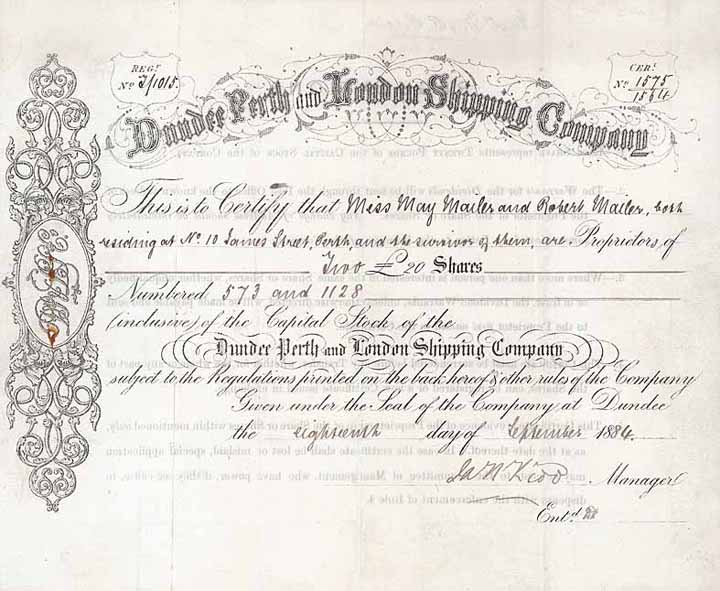 REGR.
No 3/1015.
CERT.
No 1575
1564
Dundee Perth and London Shipping Company
This is to Certify that Miss May Mailer and Robert Mailer, both
residing at No 10 James Street, Perth, and the survivor of them, are Proprietors of
Two £20 Shares
Numbered 573 and 1128
(inclusive) of the Capital Stock of the
Dundee Perth and London Shipping Company
subject to the Regulations printed on the back hereof & other rules of the Company
Given under the Seal of the Company at Dundee
the eighteenth day of September 1884.
Manager
Entd.